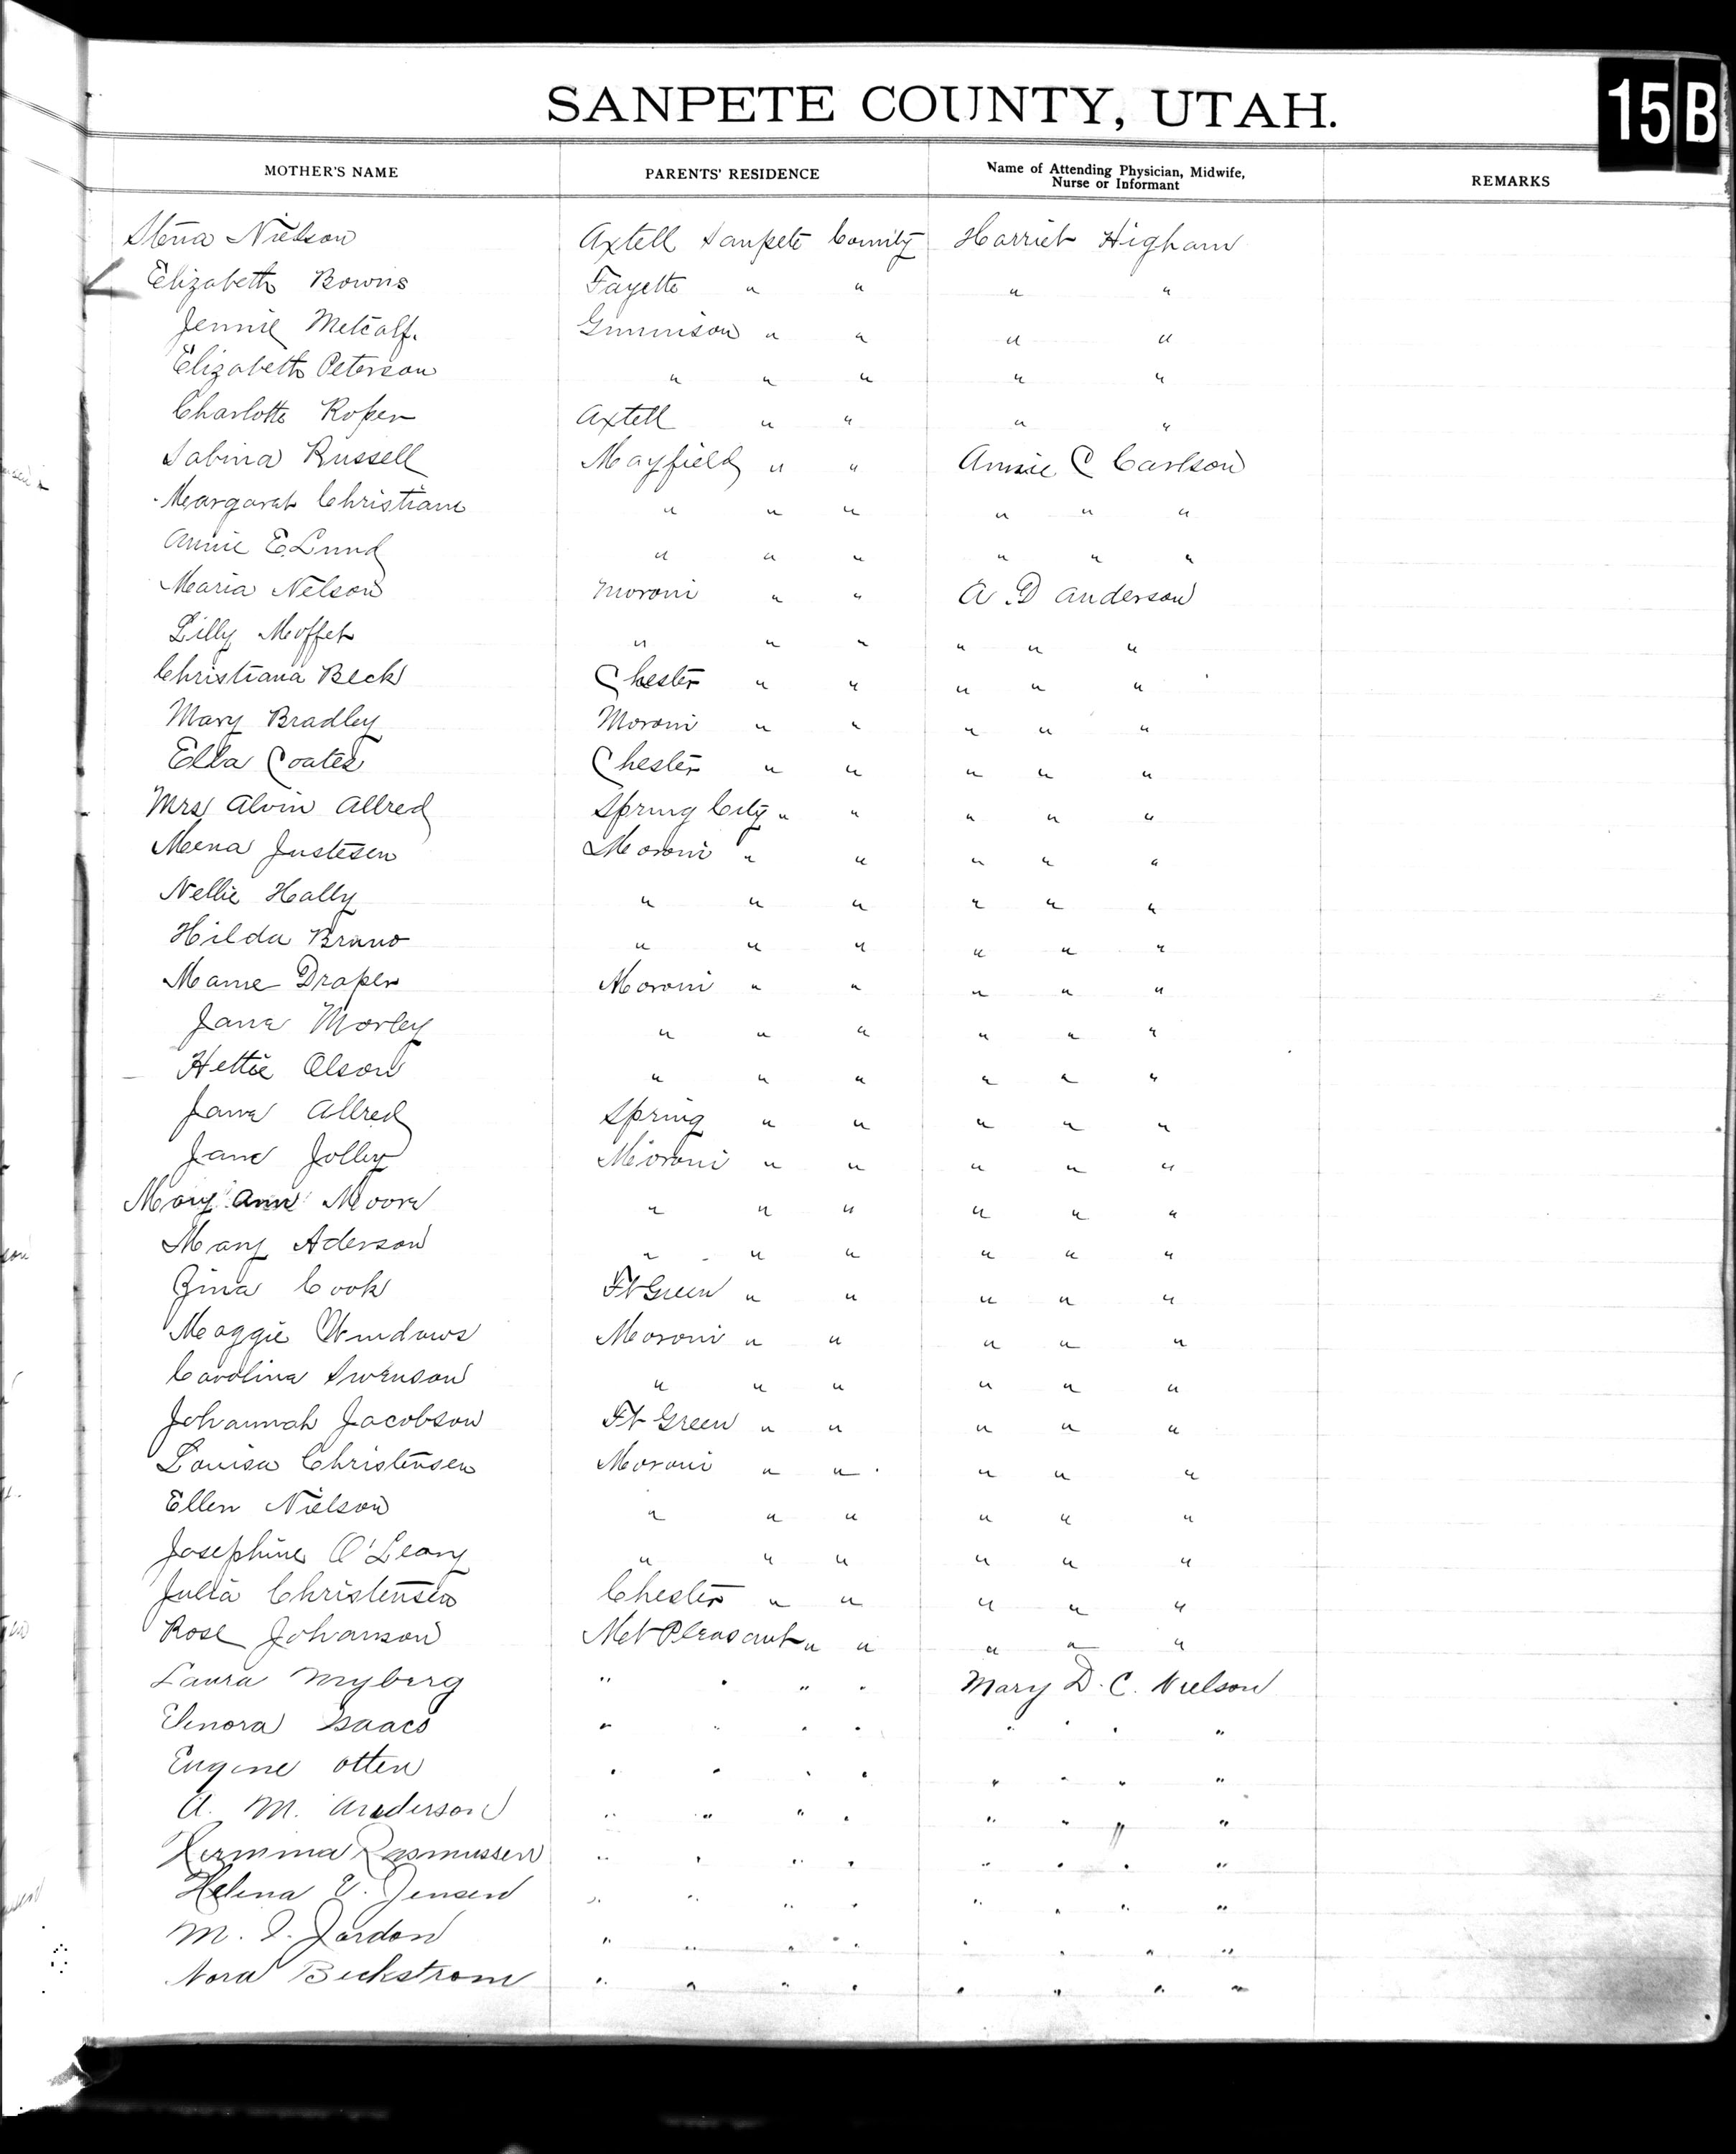 SANPETE COUNTY, UTAH.
15 B
MOTHER'S NAME PARENTS' RESIDENCE Name of Attending Physician, Midwife, Nurse or Informant REMARKS
Stena Nielson Axtell Sanpete County Harriet Higham
Elizabeth Bowns Fayette " " " "
Jennie Metcalf. Gunnison " " " "
Elizabeth Peterson " " " " "
Charlotte Roper Axtell " " " "
Sabina Russell Mayfield " " Annie C Carlson
Margaret Christian " " " " " "
Annie E. Lund " " " " " "
Maria Nelson Moroni " " A. D Anderson
Lilly Moffet " " " " " "
Christiana Beck Chester " " " " "
Mary Bradley Moroni " " " " "
Ella Coates Chester " " " " "
Mrs Alvin Allred Spring City " " " " "
Mena Justesen Moroni " " " " "
Nellie Hally " " " " " "
Hilda Bruno " " " " " "
Mame Draper Moroni " " " " "
Jane Morley " " " " " "
Hettie Olson " " " " " "
Jane Allred Spring " " " " "
Jane Jolley Moroni " " " " "
Mary Ann Moore " " " " " "
Mary Aderson " " " " " "
Zina Cook Ft Green " " " " "
Maggie Windows Moroni " " " " "
Carolina Swenson " " " " " "
Johannah Jacobson Ft Green " " " " "
Louisa Christensen Moroni " " " " "
Ellen Nielson " " " " " "
Josephine O'Leary " " " " " "
Julia Christensen Chester " " " " "
Rose Johanson Mt Pleasant " " " " "
Laura Myberg " " " " Mary D. C. Nielson
Elenora Isaacs " " " " " " " "
Eugene Otten " " " " " " " "
A. M. Anderson " " " " " " " "
Hermina Rasmussen " " " " " " " "
Helena V. Jensen " " " " " " " "
M. I. Jordon " " " " " " " "
Nora Beckstrom " " " " " " " "